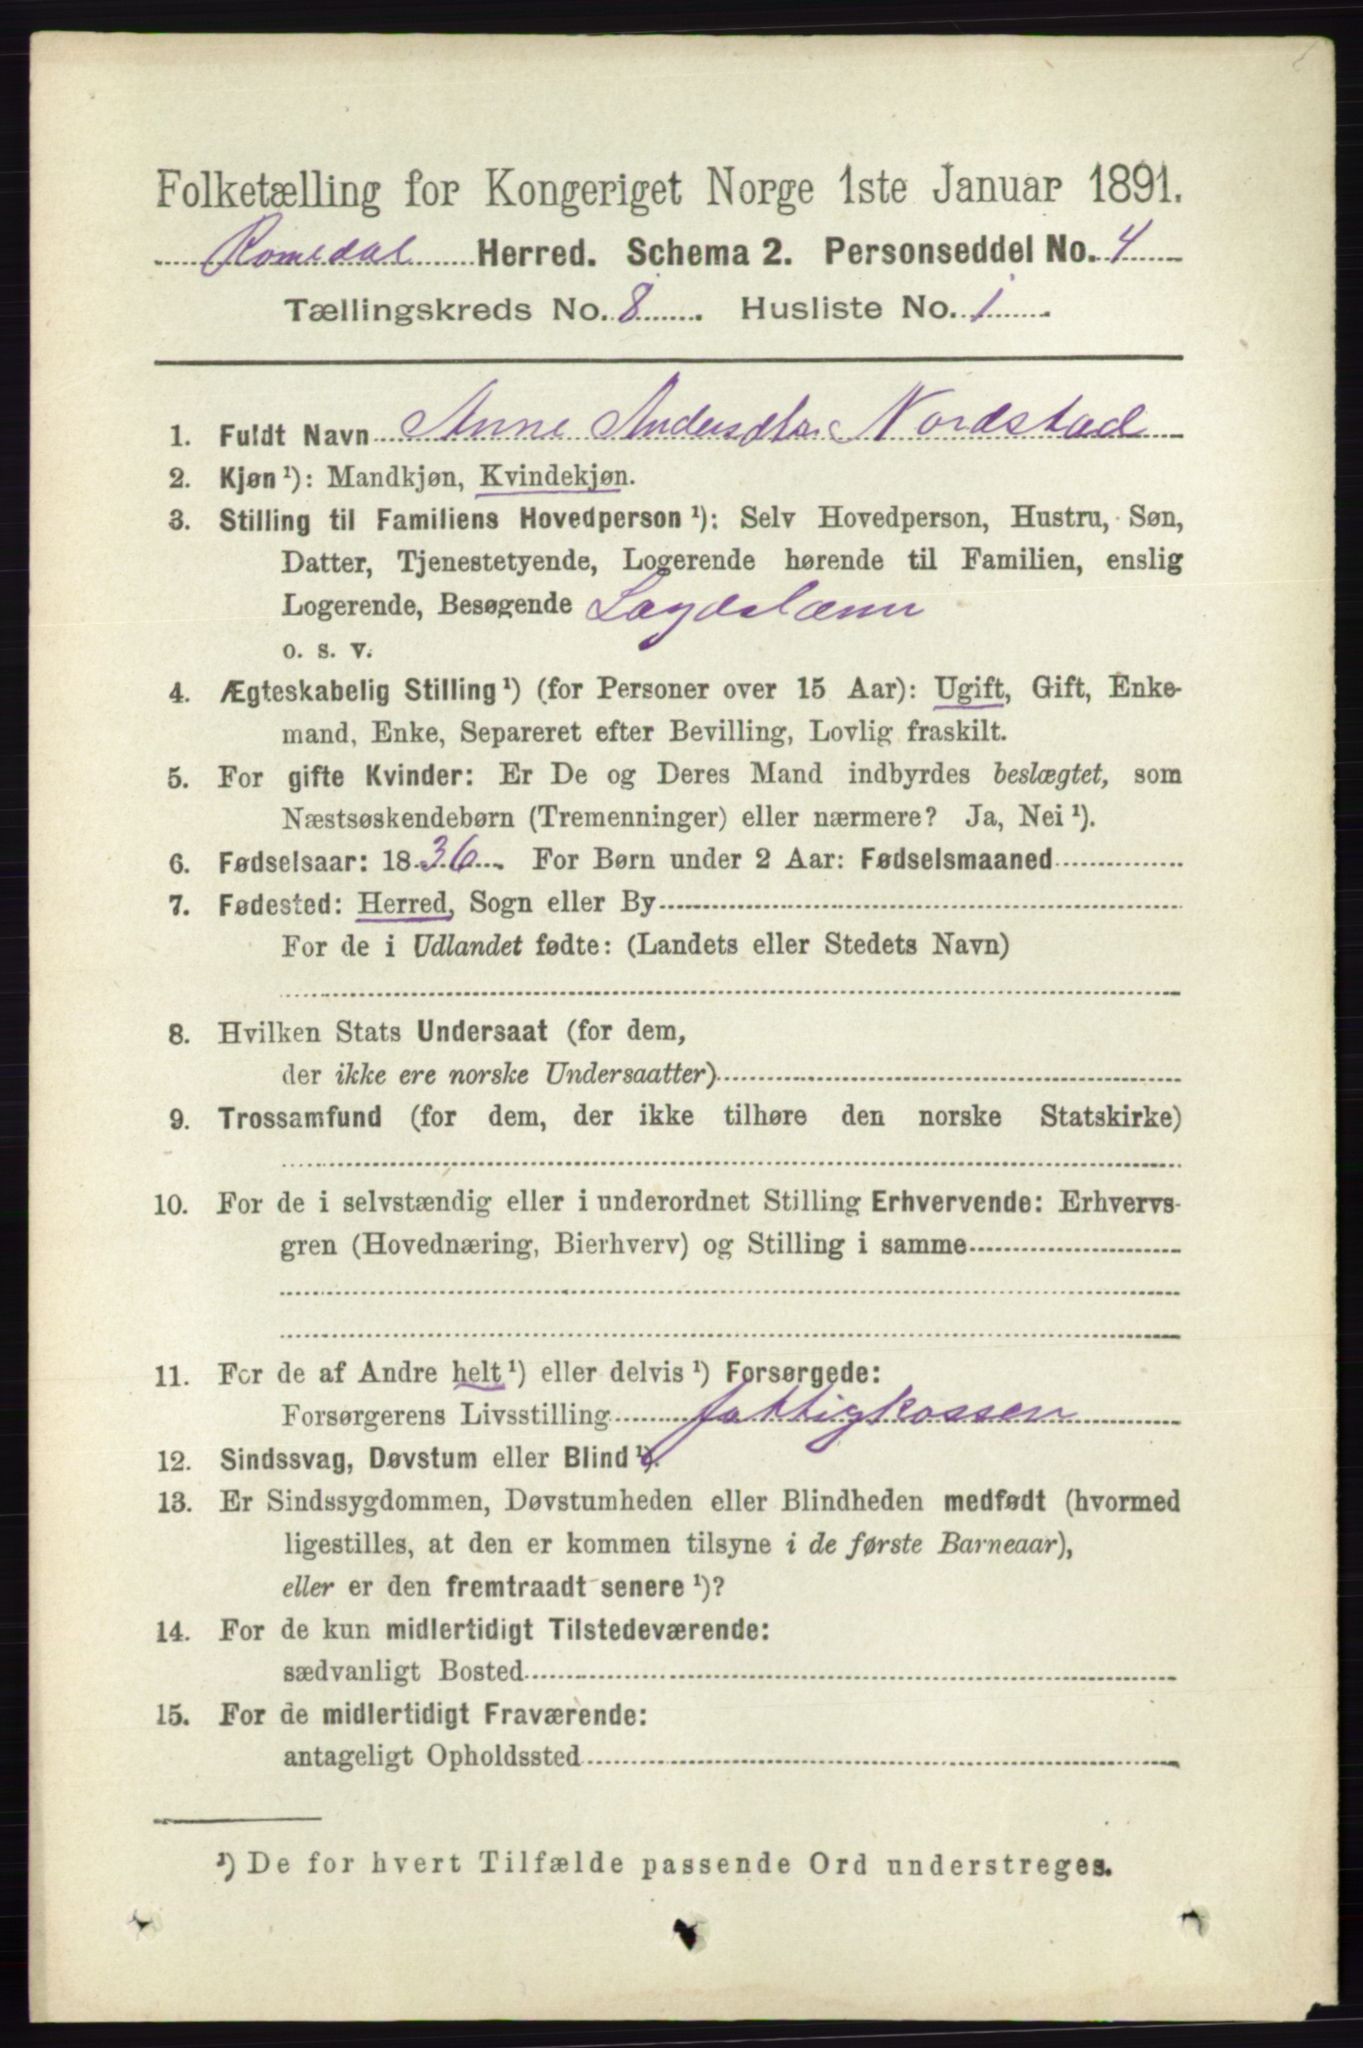 Folketælling for Kongeriget Norge 1ste Januar 1891.
Romedal Herred. Schema 2. Personseddel No. 4
Tællingskreds No. 8. Husliste No. 1.
1. Fuldt Navn Anne Andersdtr Nordstad
2. Kjøn ¹): Mandkjøn, Kvindekjøn.
3. Stilling til Familiens Hovedperson ¹): Selv Hovedperson, Hustru, Søn,
Datter, Tjenestetyende, Logerende hørende til Familien, enslig
Logerende, Besøgende Lægdslæm
o. s. v.
4. Ægteskabelig Stilling ¹) (for Personer over 15 Aar): Ugift, Gift, Enke-
mand, Enke, Separeret efter Bevilling, Lovlig fraskilt.
5. For gifte Kvinder: Er De og Deres Mand indbyrdes beslægtet, som
Næstsøskendebørn (Tremenninger) eller nærmere? Ja, Nei ¹).
6. Fødselsaar: 1836. For Børn under 2 Aar: Fødselsmaaned
7. Fødested: Herred, Sogn eller By
For de i Udlandet fødte: (Landets eller Stedets Navn)
8. Hvilken Stats Undersaat (for dem,
der ikke ere norske Undersaatter)
9. Trossamfund (for dem, der ikke tilhøre den norske Statskirke)
10. For de i selvstændig eller i underordnet Stilling Erhvervende: Erhvervs-
gren (Hovednæring, Bierhverv) og Stilling i samme
11. For de af Andre helt ¹) eller delvis ¹) Forsørgede:
Forsørgerens Livsstilling fattigkassen
12. Sindssvag, Døvstum eller Blind ¹).
13. Er Sindssygdommen, Døvstumheden eller Blindheden medfødt (hvormed
ligestilles, at den er kommen tilsyne i de første Barneaar),
eller er den fremtraadt senere ¹)?
14. For de kun midlertidigt Tilstedeværende:
sædvanligt Bosted
15. For de midlertidigt Fraværende:
antageligt Opholdssted
¹) De for hvert Tilfælde passende Ord understreges.